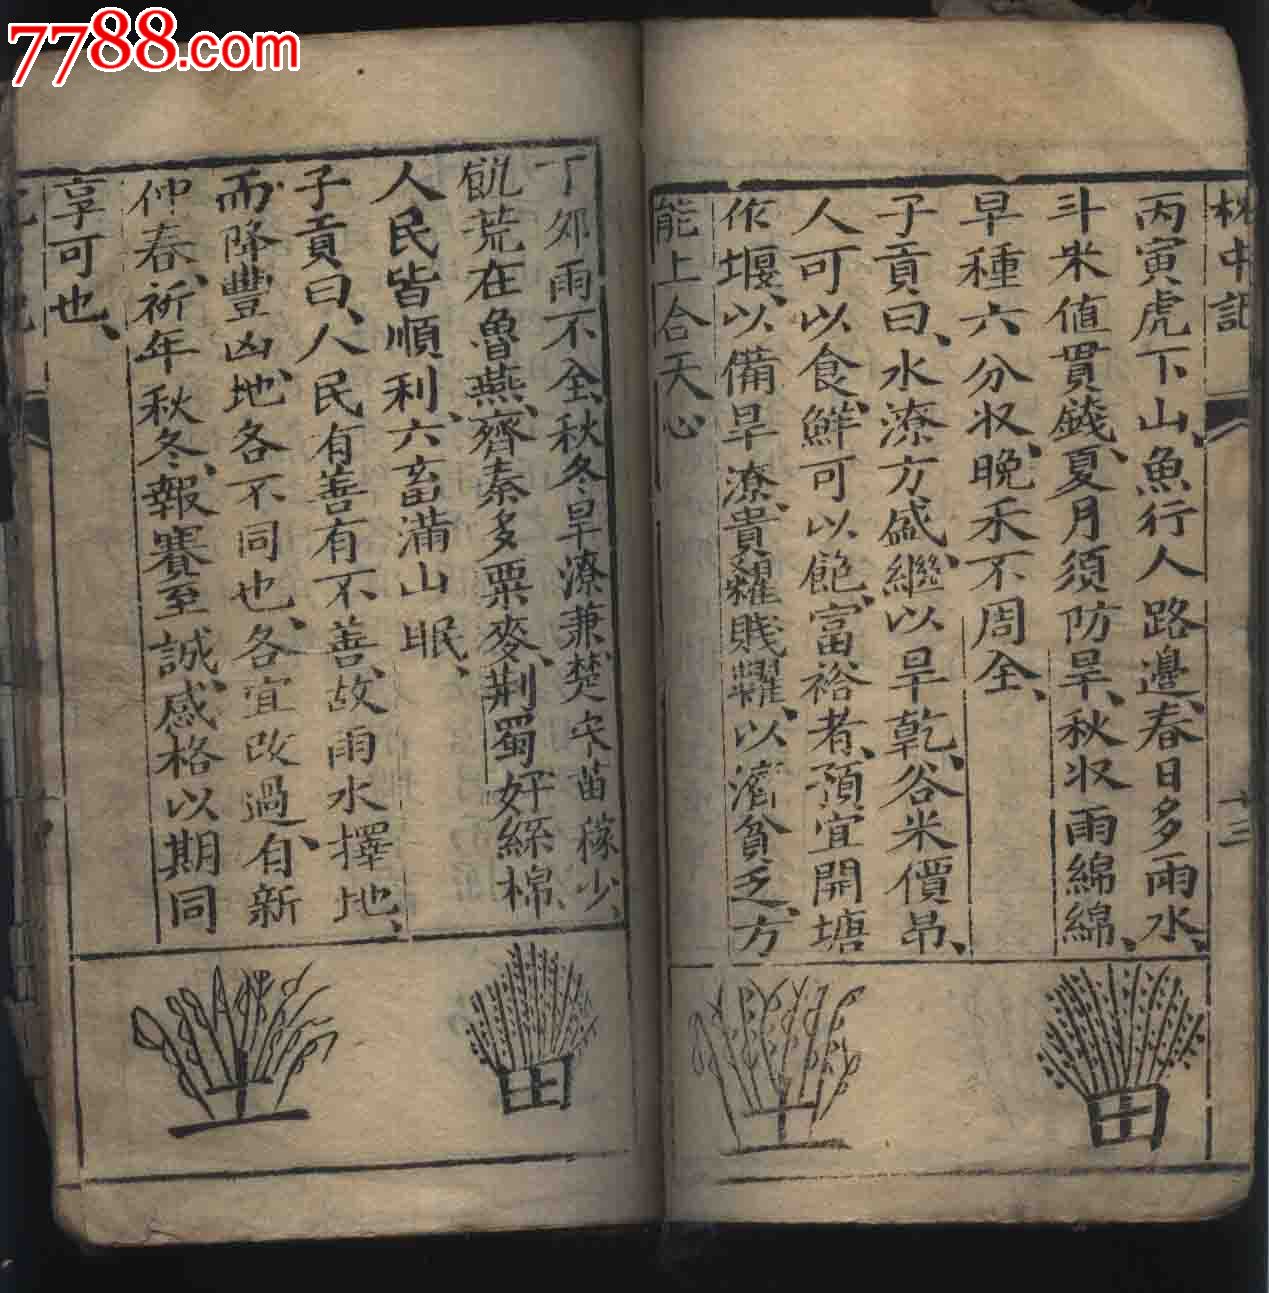 7788.com
枕中記
十三
丙寅虎下山、魚行人路邊、春日多雨水、
斗米值貫錢、夏月須防旱、秋収雨綿綿、
早種六分収、晚禾不周全、
子貢曰、水潦方盛、繼以旱乾、谷米價昂、
人可以食、鮮可以飽、富裕者、預宜開塘
作堰、以備旱潦、貴糴賤糶、以濟貧乏、方
能上合天心
田
土
丁卯雨不全、秋冬旱潦兼、楚宋苗稼少、
飢荒在魯燕、齊秦多粟麥、荆蜀好絲棉、
人民皆順利、六畜滿山眠、
子貢曰、人民有善有不善、故雨水擇地、
而降豐凶、地各不同也、各宜改過、自新
仲春、祈年秋冬、報賽至誠、感格以期同
享可也、
田
土